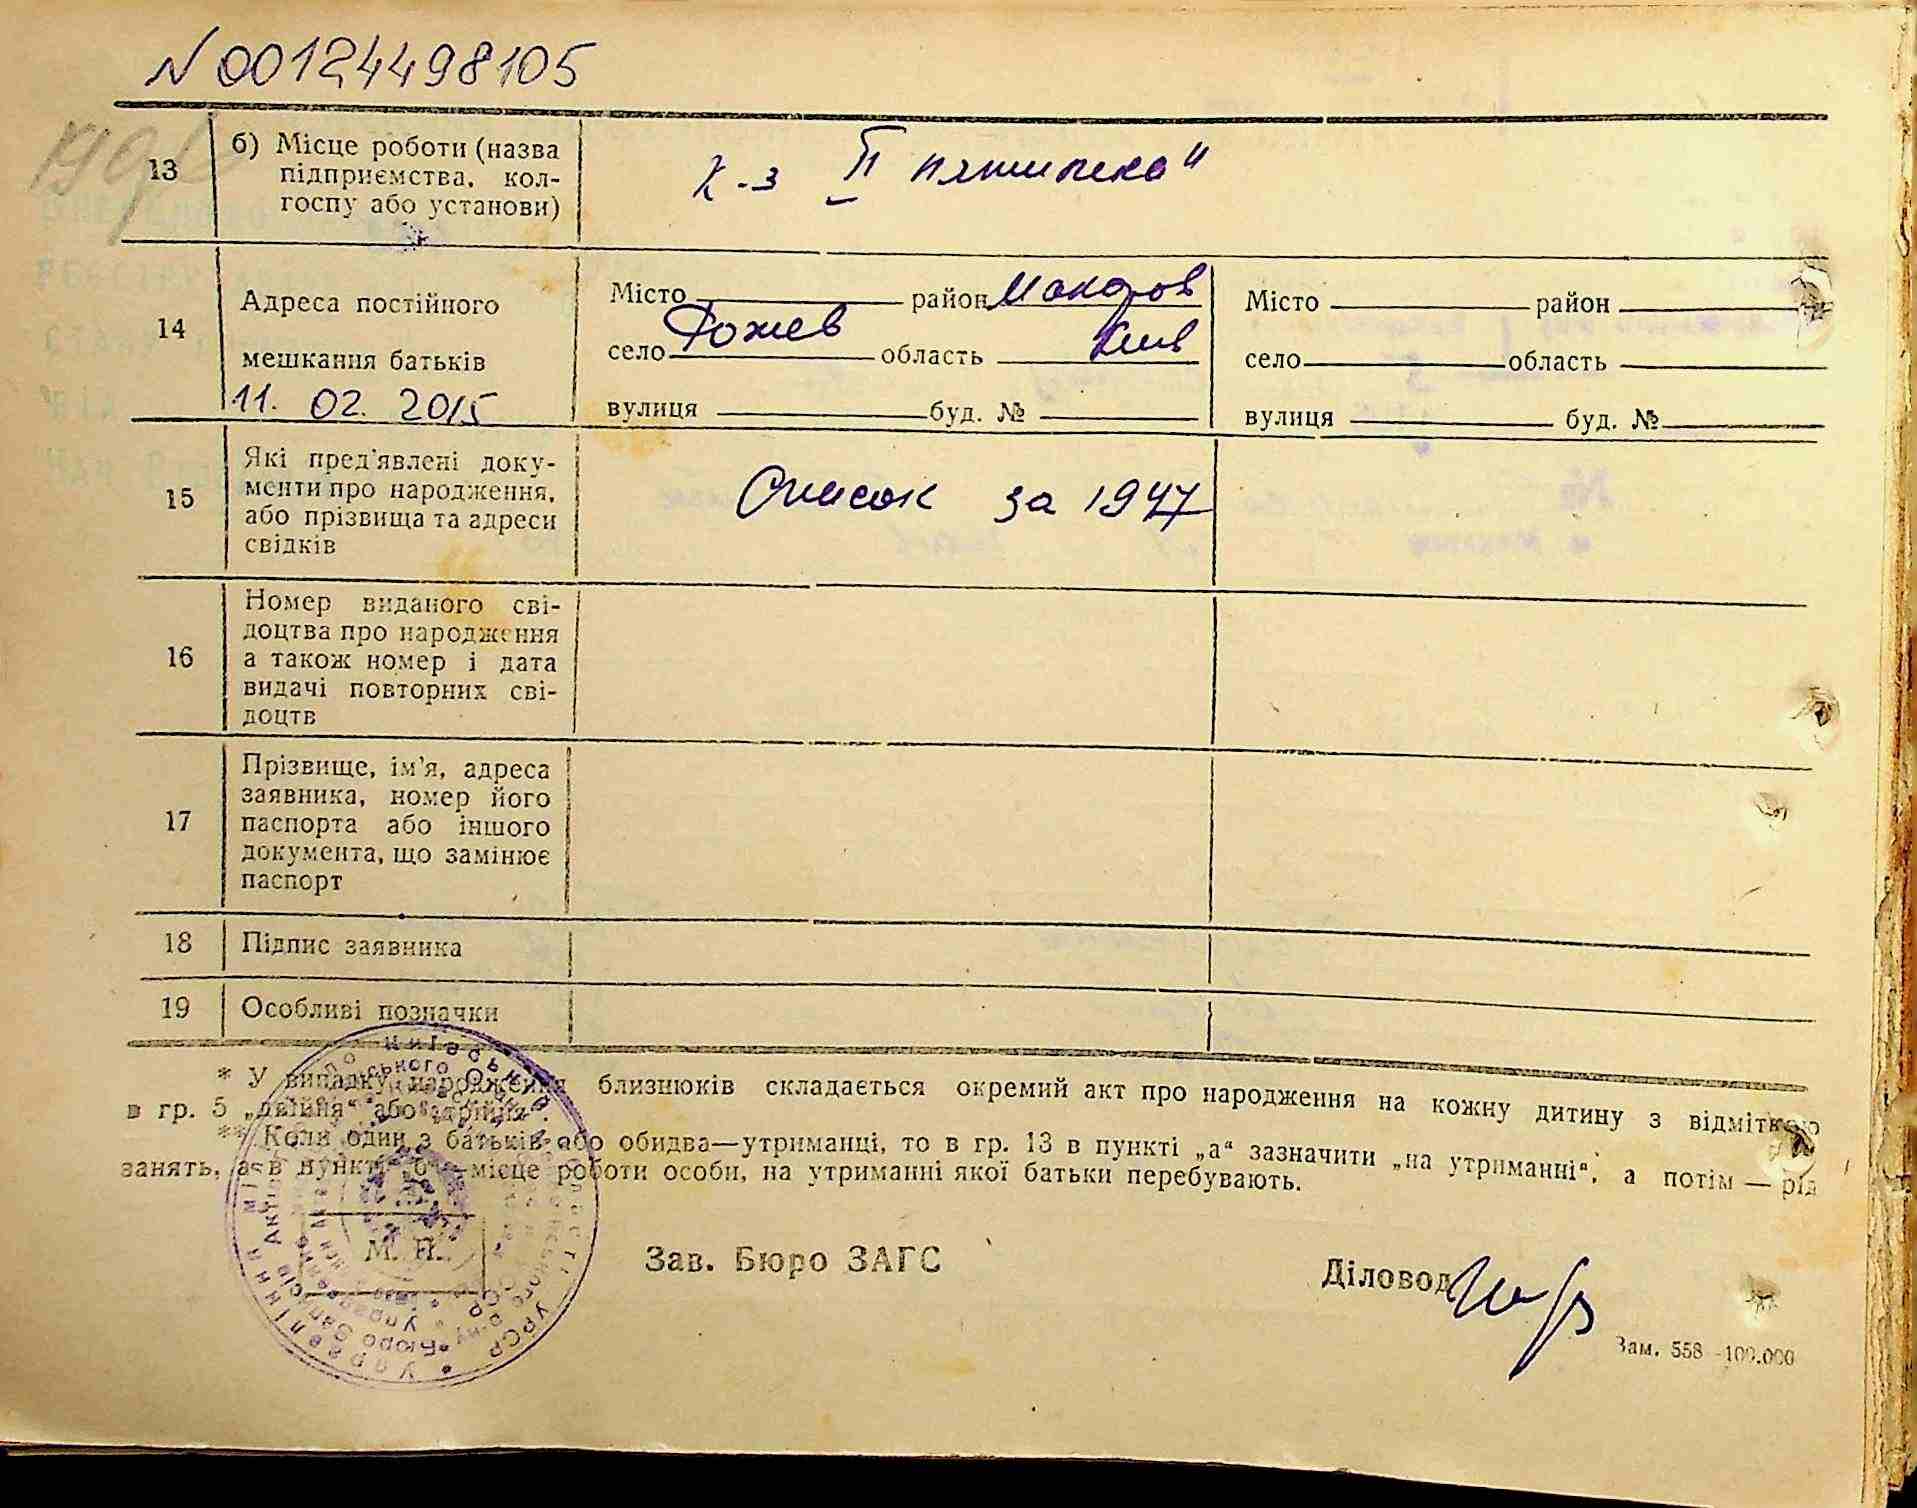 N00124498105
13
б) Місце роботи (назва
підприємства, кол-
госпу або установи)
к-з "ІІ пятирічка"
14
Адреса постійного
мешкання батьків
11. 02. 2015
Місто район Макаров
село Рожев область Київ
вулиця буд. №
Місто район
село область
вулиця буд. №
15
Які пред'явлені доку-
менти про народження,
або прізвища та адреси
свідків
Список за 1947
16
Номер виданого сві-
доцтва про народження
а також номер і дата
видачі повторних сві-
доцтв
17
Прізвище, ім'я, адреса
заявника, номер його
паспорта або іншого
документа, що замінює
паспорт
18
Підпис заявника
19
Особливі позначки
* У випадку народження близнюків складається окремий акт про народження на кожну дитину з відміткою
в гр. 5 „двійня“ або „трійня“.
** Коли один з батьків або обидва—утриманці, то в гр. 13 в пункті „а“ зазначити „на утриманні“, а потім — рід
занять, а в пункті „б“—місце роботи особи, на утриманні якої батьки перебувають.
М. П.
Зав. Бюро ЗАГС
Діловод
Зам. 558—100.000